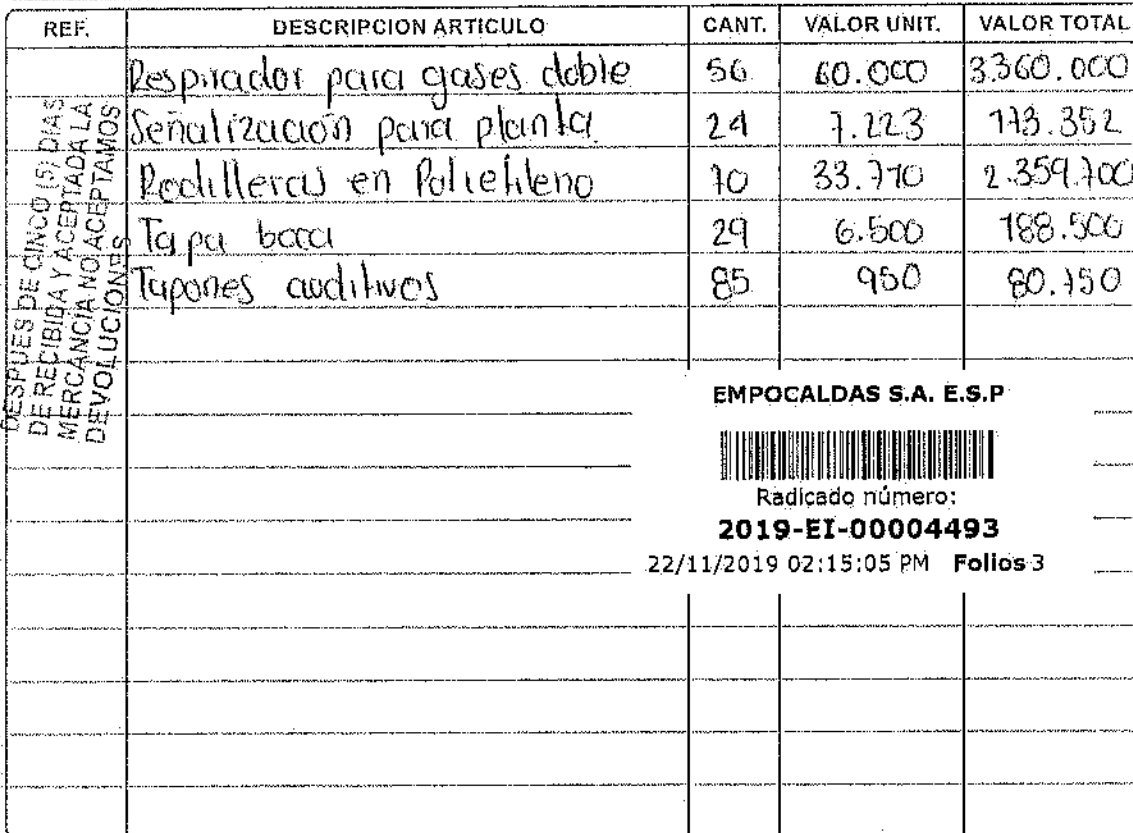 REF. DESCRIPCION ARTICULO CANT. VALOR UNIT. VALOR TOTAL
Respirador para gases doble 56 60.000 3.360.000
Señalización para planta 24 7.223 173.352
Rodilleras en Polietileno 70 33.710 2.359.700
Tapa boca 29 6.500 188.500
Tapones auditivos 85 950 80.750
DESPUES DE CINCO (5) DIAS
DE RECIBIDA Y ACEPTADA LA
MERCANCIA NO ACEPTAMOS
DEVOLUCIONES
EMPOCALDAS S.A. E.S.P
Radicado número:
2019-EI-00004493
22/11/2019 02:15:05 PM Folios 3